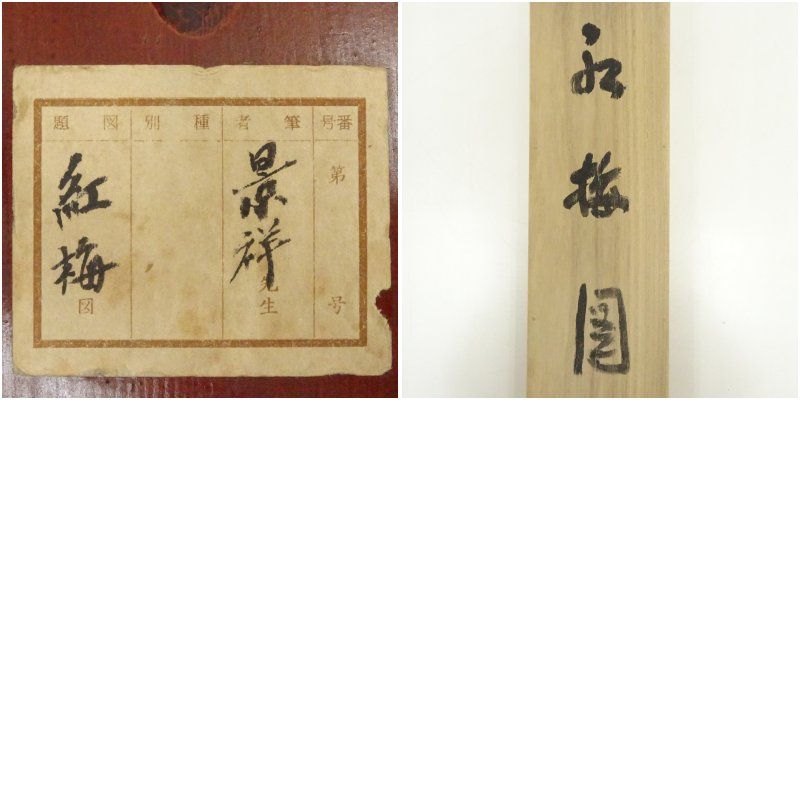 番号 第 号
筆者 景祥先生
種別
図題 紅梅図
紅梅図